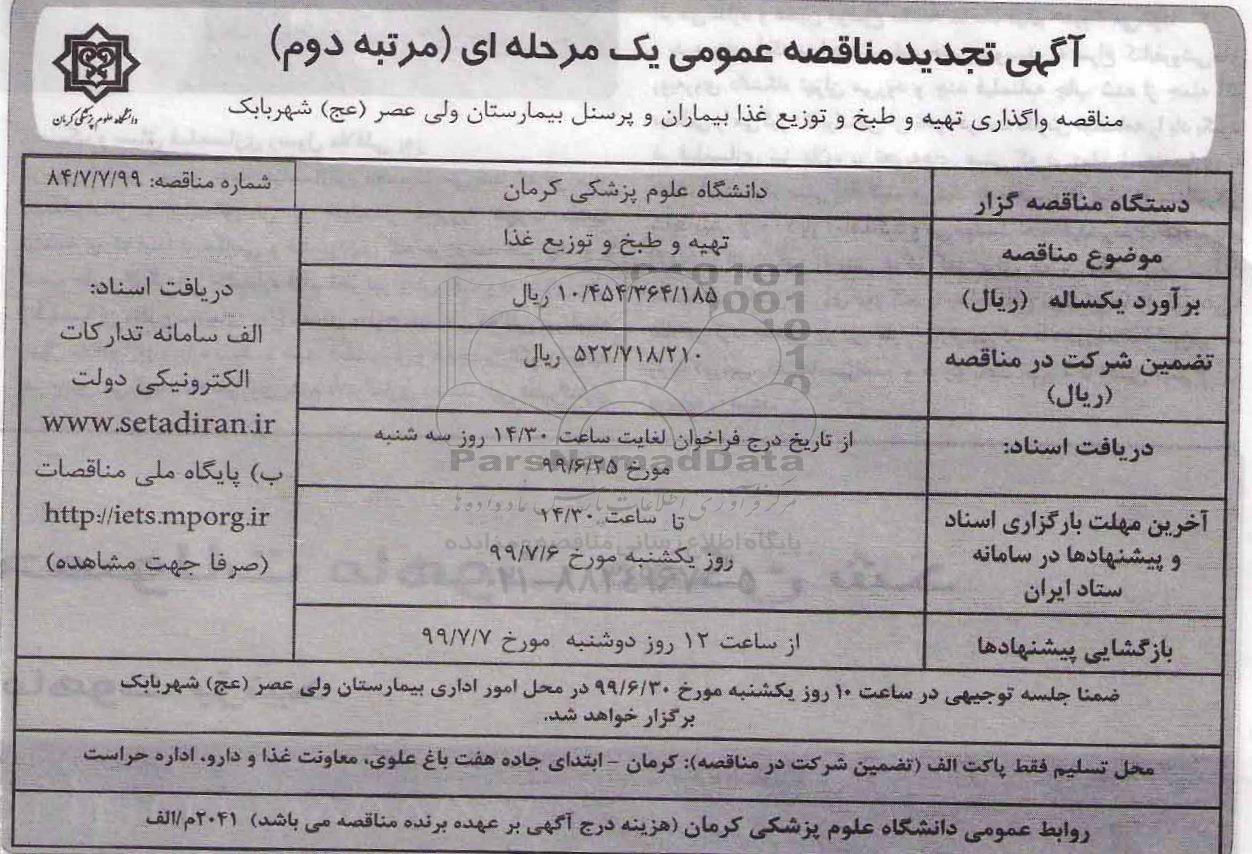 آگهی تجدیدمناقصه عمومی یک مرحله ای (مرتبه دوم)
مناقصه واگذاری تهیه و طبخ و توزیع غذا بیماران و پرسنل بیمارستان ولی عصر (عج) شهربابک
دانشگاه علوم پزشکی کرمان
دستگاه مناقصه گزار
دانشگاه علوم پزشکی کرمان
شماره مناقصه: ۸۴/۷/۷/۹۹
موضوع مناقصه
تهیه و طبخ و توزیع غذا
برآورد یکساله (ریال)
۱۰/۴۵۴/۳۶۴/۱۸۵ ریال
تضمین شرکت در مناقصه
(ریال)
۵۲۲/۷۱۸/۲۱۰ ریال
دریافت اسناد:
از تاریخ درج فراخوان لغایت ساعت ۱۴/۳۰ روز سه شنبه
مورخ ۹۹/۶/۲۵
آخرین مهلت بارگزاری اسناد
و پیشنهادها در سامانه
ستاد ایران
تا ساعت ۱۴/۳۰
روز یکشنبه مورخ ۹۹/۷/۶
بازگشایی پیشنهادها
از ساعت ۱۲ روز دوشنبه مورخ ۹۹/۷/۷
دریافت اسناد:
الف سامانه تدارکات
الکترونیکی دولت
www.setadiran.ir
ب) پایگاه ملی مناقصات
http://iets.mporg.ir
(صرفا جهت مشاهده)
ضمنا جلسه توجیهی در ساعت ۱۰ روز یکشنبه مورخ ۹۹/۶/۳۰ در محل امور اداری بیمارستان ولی عصر (عج) شهربابک
برگزار خواهد شد.
محل تسلیم فقط پاکت الف (تضمین شرکت در مناقصه): کرمان – ابتدای جاده هفت باغ علوی، معاونت غذا و دارو، اداره حراست
روابط عمومی دانشگاه علوم پزشکی کرمان (هزینه درج آگهی بر عهده برنده مناقصه می باشد) ۲۰۴۱م/الف
ParsNamadData